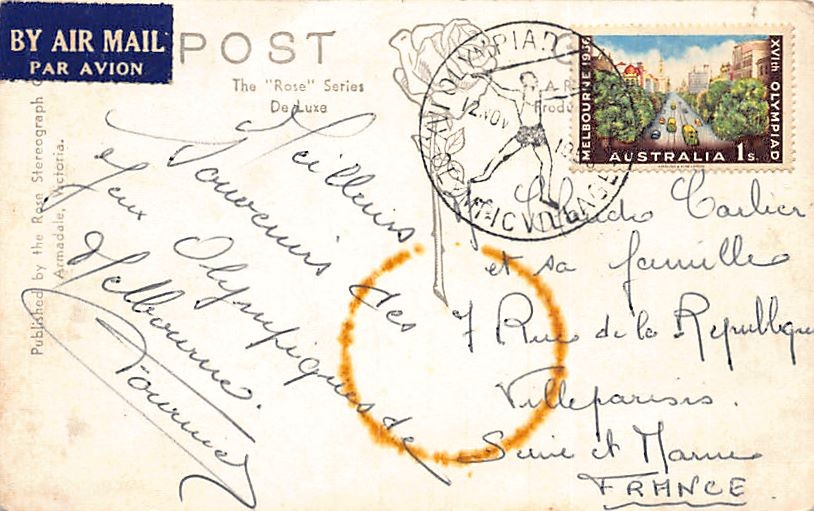 BY AIR MAIL
PAR AVION
POST
The "Rose" Series
De Luxe
Published by the Rose Stereograph
Armadale, Victoria.
Meilleurs
Souvenirs des
Jeux Olympiques de
Melbourne.
Fournier
OLYMPIAD
12 NOV
VILLAGE
MELBOURNE 1956
XVIth OLYMPIAD
AUSTRALIA 1s.
Carlier
et sa famille
7 Rue de la République
Villeparisis.
Seine et Marne
FRANCE